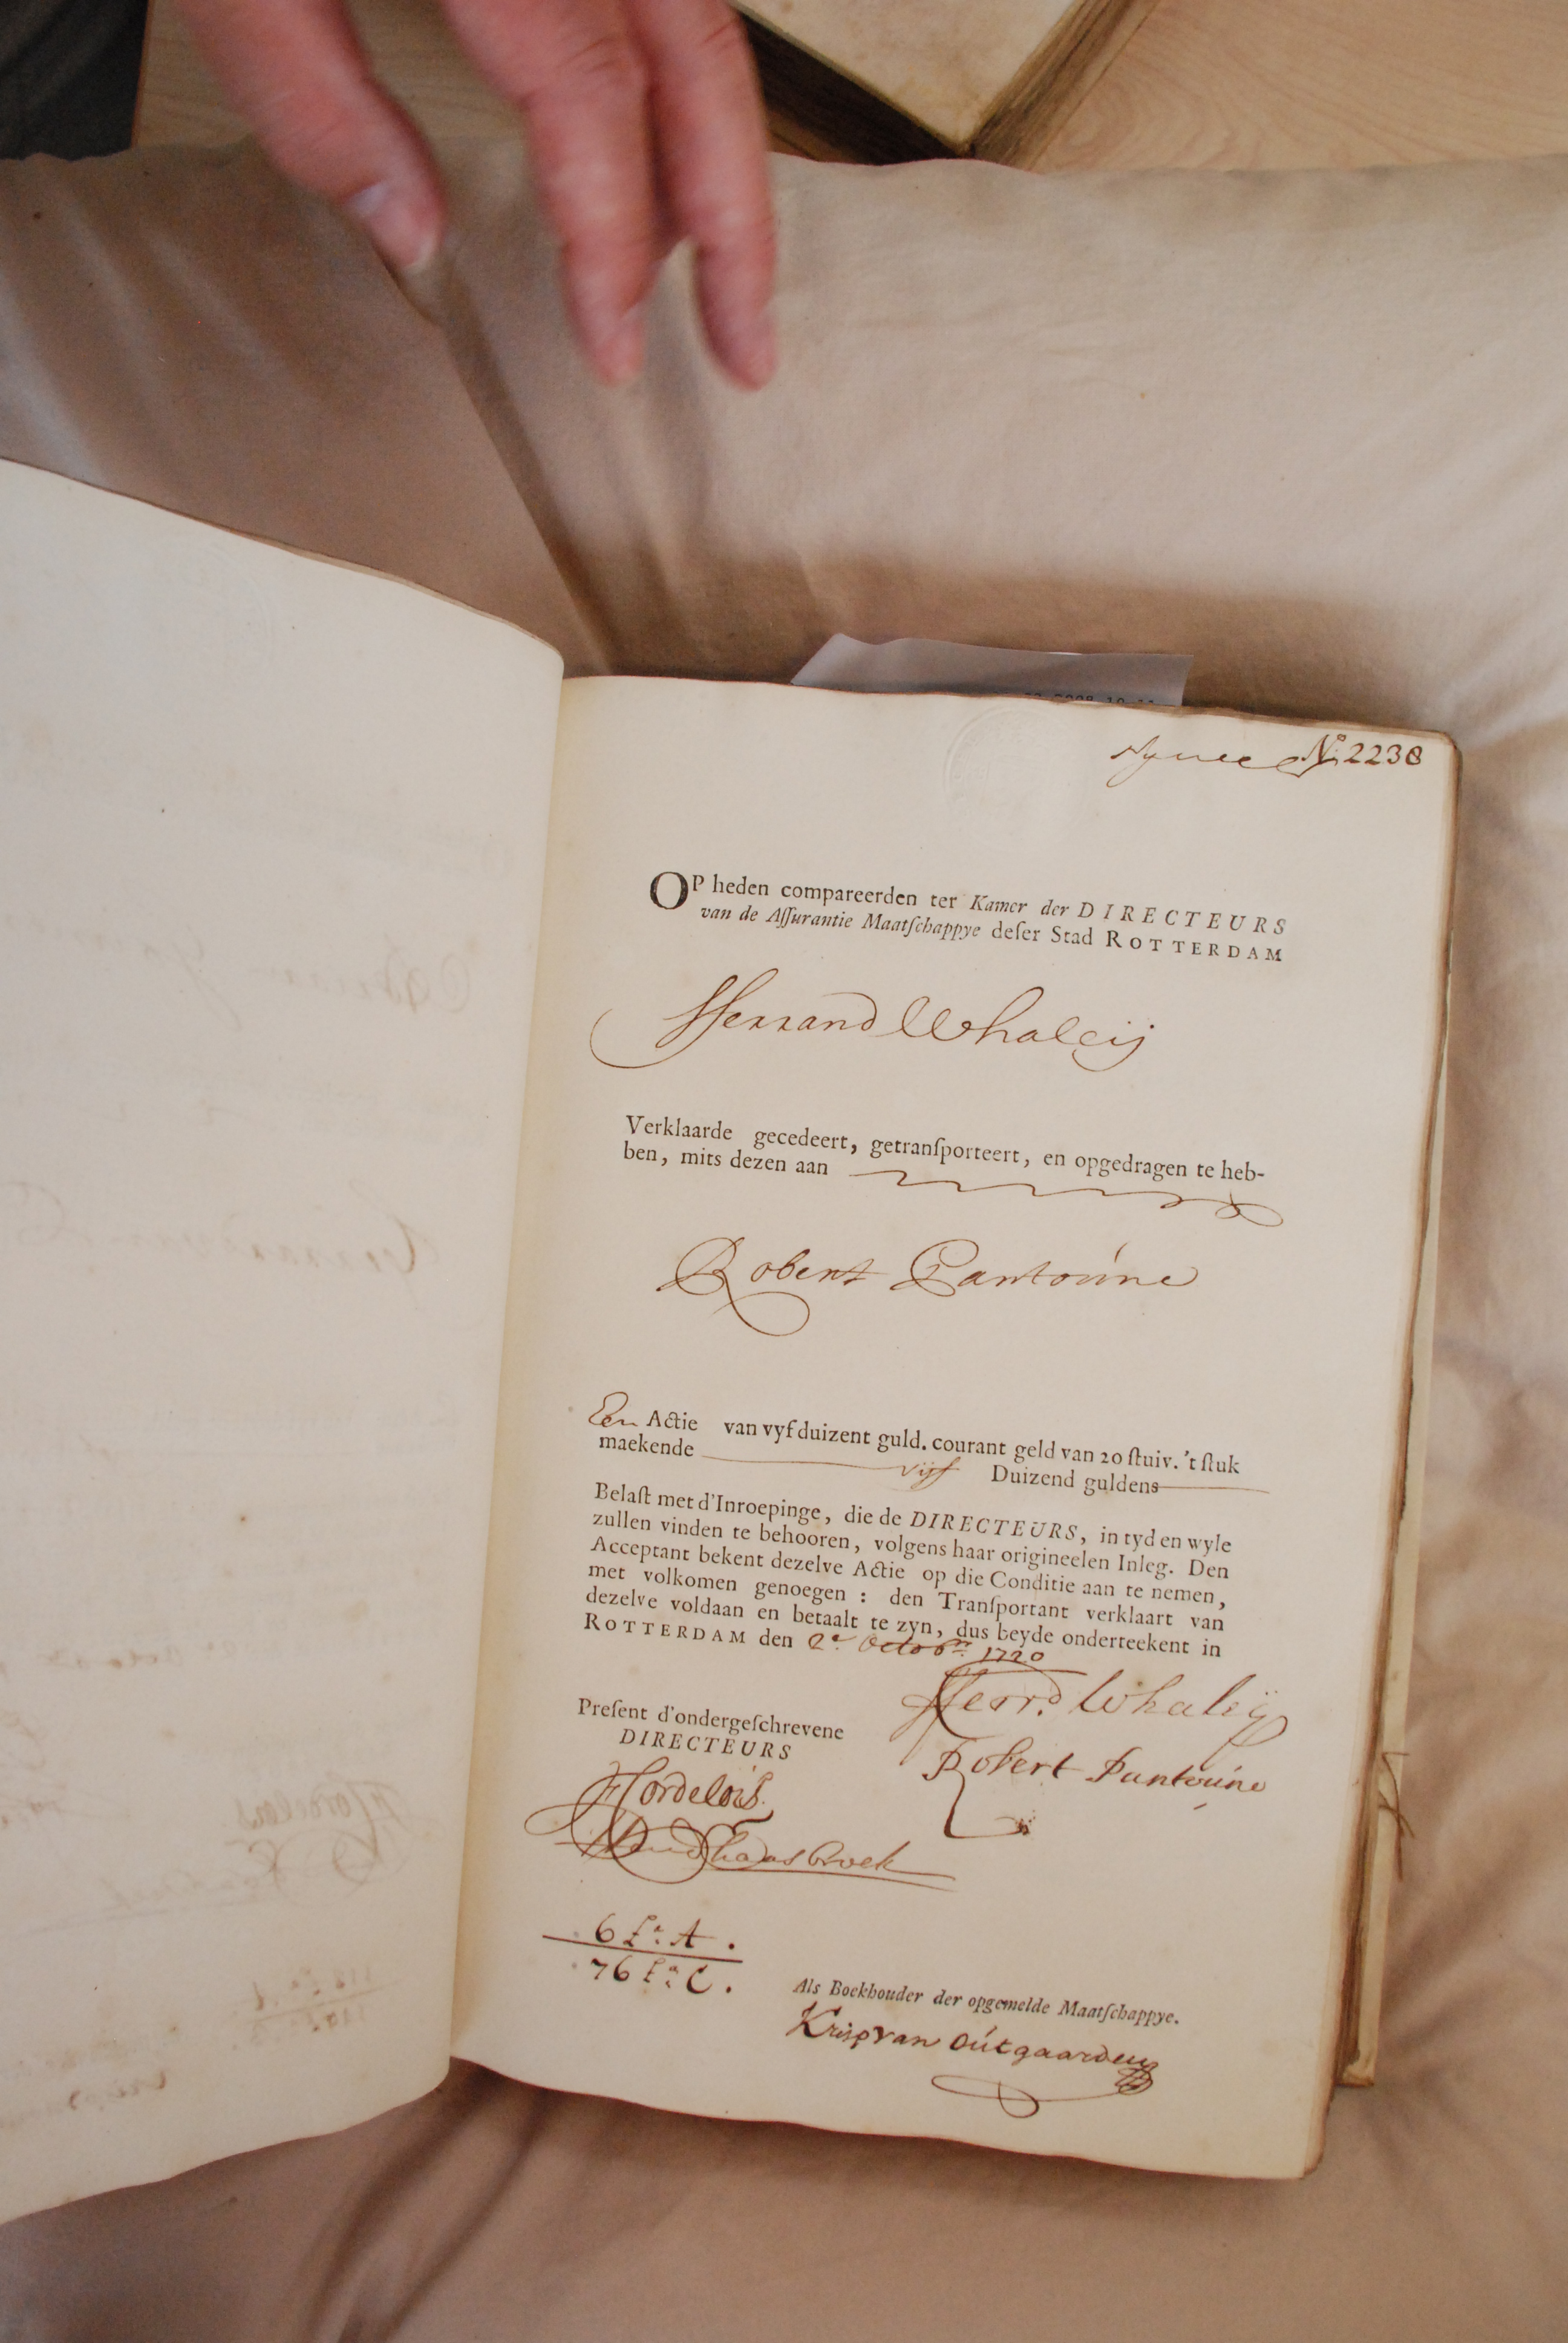 No. 2238
OP heden compareerden ter Kamer der DIRECTEURS
van de Aſſurantie Maatſchappye deſer Stad ROTTERDAM
Herrand Whaleij
Verklaarde gecedeert, getranſporteert, en opgedragen te heb-
ben, mits dezen aan
Robert Pantoúne
Een Actie van vyf duizent guld. courant geld van 20 ſtuiv. 't ſtuk
maekende vijf Duizend guldens
Belaſt met d'Inroepinge, die de DIRECTEURS, in tyd en wyle
zullen vinden te behooren, volgens haar origineelen Inleg. Den
Acceptant bekent dezelve Actie op die Conditie aan te nemen,
met volkomen genoegen : den Tranſportant verklaart van
dezelve voldaan en betaalt te zyn, dus beyde onderteekent in
ROTTERDAM den 2e Octobr. 1720
Herrd. Whaleÿ
Preſent d'ondergeſchrevene
DIRECTEURS
Robert Pantoúne
Hordelois
Haasbroek
6 La: A.
76 La: C.
Als Boekhouder der opgemelde Maatſchappye.
Krisp van Oútgaarden